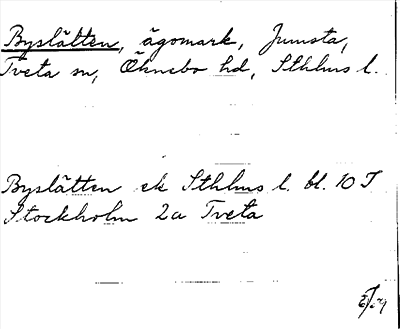 Byslätten, ägomark, Jumsta,
Tveta sn, Öknebo hd, Sthlms l.
Byslätten ek Sthlms l. bl. 10 T
Stockholm 2a Tveta